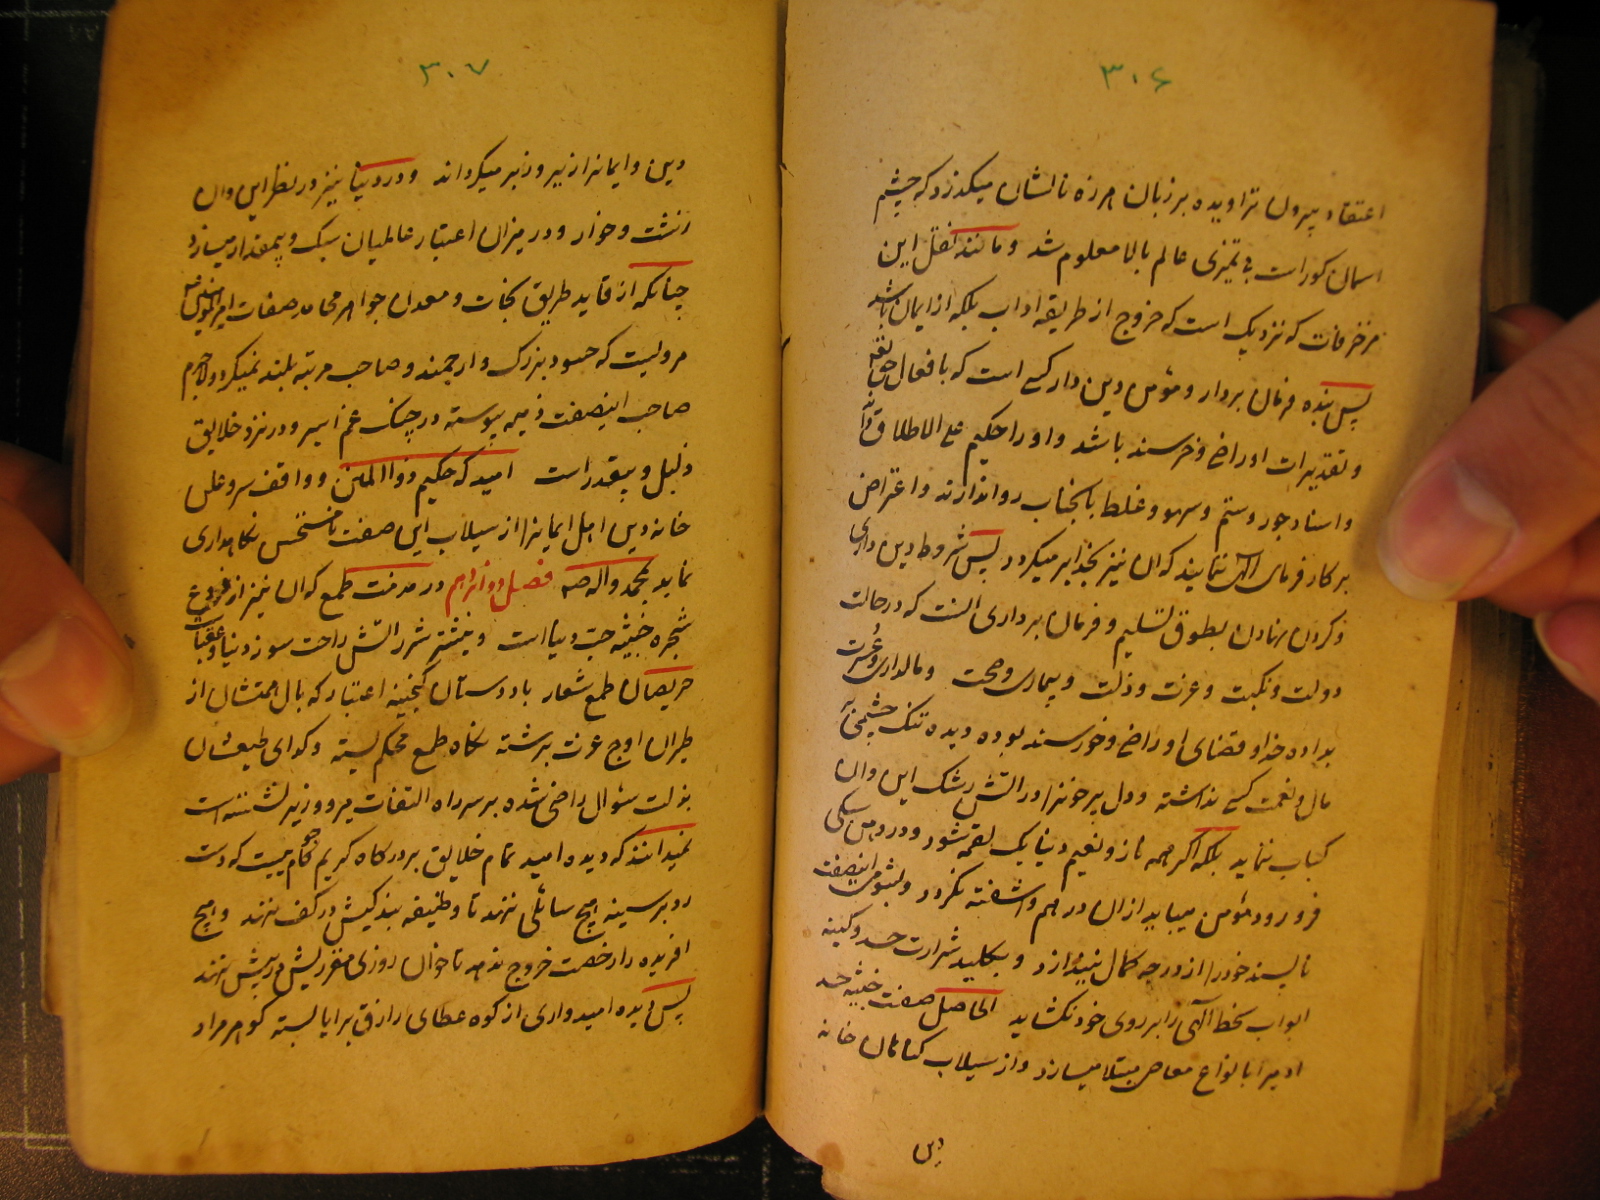 ۳۰۶
اعتقاد بیرون تراویده بر زبان هرزه نالشان میگذرد که چشم
اسمان کورات بی تمیزی عالم بالا معلوم شد و مانند نقل این
مزخرفات که نزدیک است که خروج از طریقه اداب بلکه از ایمان باشد
پس بنده فرمان بردار و مؤمن دین دار کسی است که با فعال حق تعه
و تقدیرات او راضی و خرسند باشد و او را حکیم علی الاطلاق داند
و اسناد جور و ستم و سهو و غلط بانجناب روا ندارند و اعتراض
بر کار فرمای الهی ننمایند که آن نیز بخدا بر میگردد پس شروط دین داری
و گردن نهادن بطوق تسلیم و فرمان برداری انست که در حالت
دولت و نکبت و عزت و ذلت و بیماری و صحت و مالداری و عسرت
بداده خدا و قضای او راضی و خورسند بوده دیده تنک چشمی به
مال و نعمت کسی نداشته و دل پر خونرا در اتش رشک این وان
کباب ننماید بلکه اکر همه ناز و نعیم دنیا یک لقمه شود و در دهن سکی
فرو رود مؤمن میباید ازان در هم و اشفته نکردد و بشومی اینصفت
ناپسند خود را از درجه کمال نیندازد و بکلید شرارت حسد و کینه
ابواب سخط الهی را بر روی خود نکشاید الحاصل صفت خبیثه حسد
ادمیرا بانواع معاصی مبتلا میسازد و از سیلاب کناهان خانه
دین
۳۰۷
دین و ایمانرا زیر و زبر میکرداند و در دنیا نیز در نظر این وان
زشت و خوار و در میزان اعتبار عالمیان سبک و بیمقدار میسازد
چنانکه از قاید طریق نجات و معدن جواهر محامد صفات امیرالمؤمنین
مرویست که حسود بزرک و ارجمند و صاحب مرتبه بلند نمیکردد لاجرم
صاحب اینصفت ذمیمه پیوسته در چنک غم اسیر و در نزد خلایق
ذلیل و بیقدر است امید که حکیم ذوالمنن و واقف سر و علن
خانه دین اهل ایمانرا از سیلاب این صفت نامستحسن نکاهداری
نماید بمحمد واله صه فصل دوازدهم در مذمت طمع که ان نیز از فروع
شجره خبیثه حب دنیا است و نیشتر شرر اتش راحت سوز دنیا و عقبا
حریصان طمع شعار باددستان کنجینه اعتبار که بال همتشان از
طیران اوج عزت برشته نکاه طمع محکم بسته و کدای طبعشان
بذلت سئوال راضی شده بر سر راه التفات میر و وزیر نشسته است
نمیدانند که دیده امید تمام خلایق بر درکاه کریم کام بخشیست که دست
رد بر سینه هیچ سائلی ننهد تا وظیفه بندکیش در کف ننهد و هیچ
افریده را رخصت خروج ندهد تا خوان روزی مقرریش در پیش ننهد
پس دیده امیدواری از کوه عطای رازق برایا بسته کوهر مراد